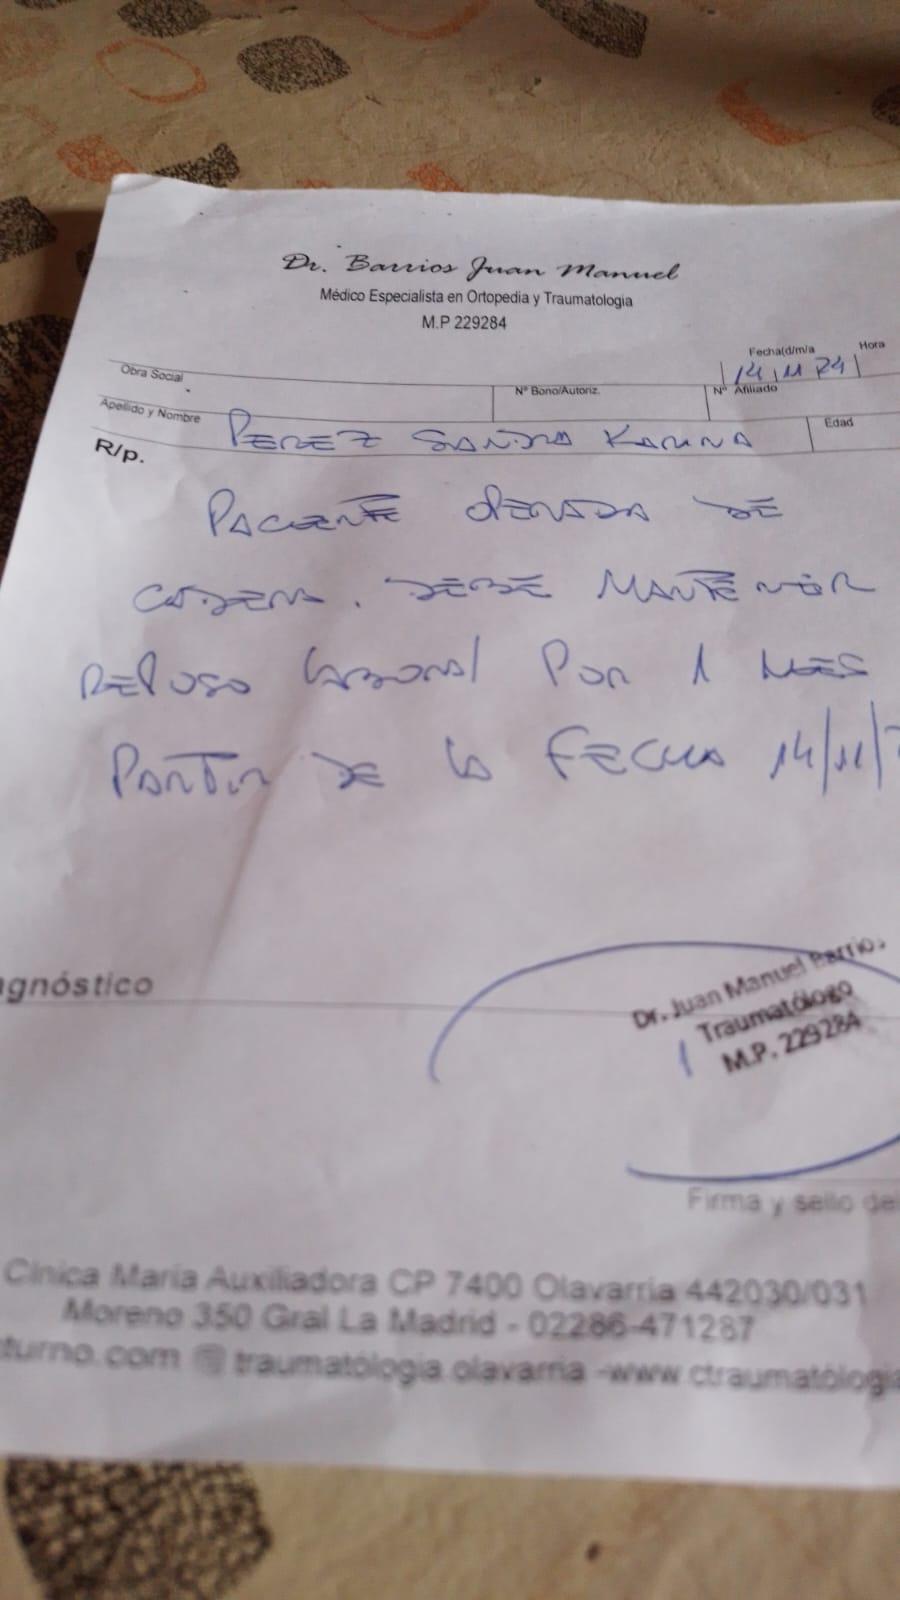 Dr. Barrios Juan Manuel
Médico Especialista en Ortopedia y Traumatologia
M.P 229284
Fecha(d/m/a Hora
14 11 24
Obra Social
Nº Bono/Autoriz. Nº Afiliado
Apellido y Nombre PEREZ SANDRA KARINA Edad
R/p.
PACIENTE OPERADA DE
CADERA. DEBE MANTENER
REPOSO LABORAL POR 1 MES
PARTIR DE LA FECHA 14/11/
agnóstico
Dr. Juan Manuel Barrios
Traumatólogo
M.P. 229284
Firma y sello de
Clnica María Auxiliadora CP 7400 Olavarria 442030/031
Moreno 350 Gral La Madrid - 02286-471287
turno.com traumatólogia.olavarria -www.ctraumatólogia